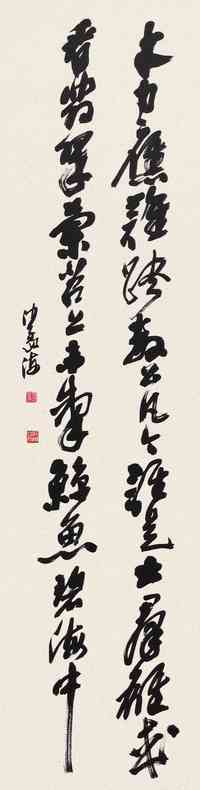 才力應難跨數公凡今誰是出羣雄或
看翡翠蘭苕上未掣鯨魚碧海中
沙孟海